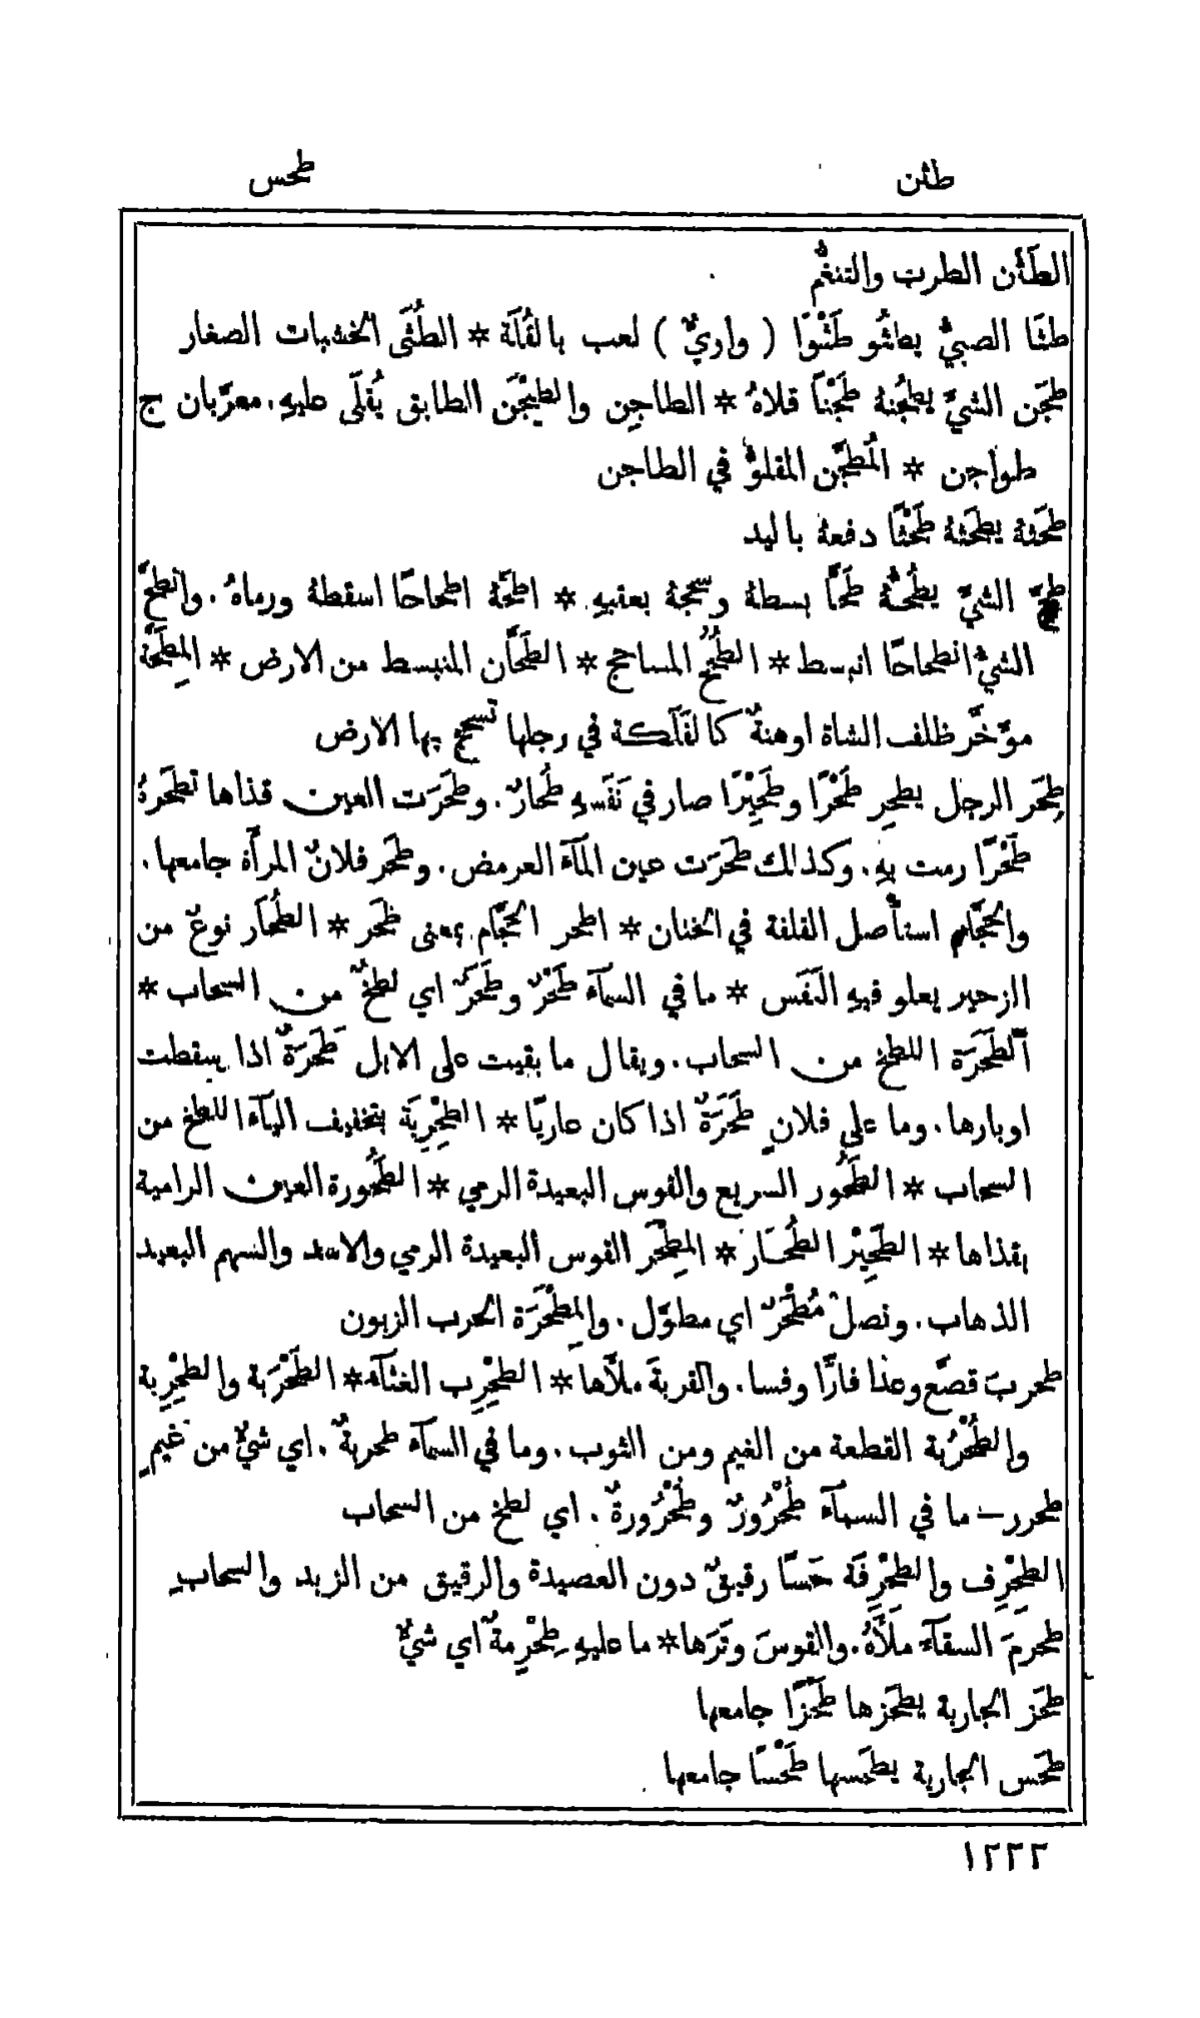 طثن
طحس
الطَثْن الطرب والتنغُّم
طثَا الصبيُّ يطثُو طَثْوًا (واويٌّ) لعب بالقُلَة * الطُثَى الخشبات الصغار
طجَن الشيَّ يطجُنهُ طَجْنًا قلاهُ * الطاجِن والطَيْجَن الطابق يُقلَى عليهِ. معرَّبان ج
طواجن * المُطجَّن المقلوُّ في الطاجن
طحَثهُ يطحَثهُ طَحْثًا دفعهُ باليد
طحَّ الشيَّ يطُحُّهُ طَحًّا بسطهُ وسحجهُ بعقبهِ * اطحَّهُ اطحاحًا اسقطهُ ورماهُ. وانطحَّ
الشيُّ انطحاحًا انبسط * الطُحُح المساحج * الطَحَّان المنبسط من الارض * المِطَحَّة
موَّخَّر ظلف الشاة او هنةٌ كالفَلَكة في رجلها تسحج بها الارض
طحَر الرجل يطحِر طَحْرًا وطَحِيْرًا صار في نَفَسهِ طُحَارٌ. وطحَرَت العين قذاها تطحَرهُ
طَحْرًا رمت بهِ. وكذلك طحَرَت عين المآء العرمض. وطحَر فلانٌ المرأَة جامعها.
والحجَّام استأْصل القلفة في الختان * اطحر الحجَّام بمعنى طحَر * الطُحَار نوعٌ من
الزحير يعلو فيهِ النَفَس * ما في السمآء طَحْرٌ وطَحَرٌ اي لطخٌ من السحاب *
الطَحَرَة اللطخ من السحاب. ويقال ما بقيت على الابل طَحَرَةٌ اذا سقطت
اوبارها. وما على فلانٍ طَحَرَةٌ اذا كان عاريًا * الطِحْرِيَة بتخفيف اليآء اللطخ من
السحاب * الطَحُور السريع والقوس البعيدة الرمي * الطَحُورة العين الرامية
بقذاها * الطَحِيْر الطُحَار * المِطْحَر القوس البعيدة الرمي والاسد والسهم البعيد
الذهاب. ونصلٌ مُطْحَرٌ اي مطوَّل. والمِطْحَرَة الحرب الزبون
طحربَ قصَّع وعدا فارًّا وفسا. والقربةَ ملأَها * الطِحْرِب الغثآء * الطَحْرَبة والطِحْرِبة
والطُحْرُبة القطعة من الغيم ومن الثوب. وما في السمآء طحربةٌ. اي شيٌ من غيمٍ
طحرر – ما في السمآء طُحْرُورٌ وطُحْرُورةٌ. اي لطخ من السحاب
الطِحْرِف والطِحْرِفَة حَسًا رقيقٌ دون العصيدة والرقيق من الزبد والسحاب
طحرمَ السقآء ملَأَهُ. والقوسَ وتَرَها * ما عليهِ طِحْرِمةٌ اي شيٌ
طحَز الجارية يطحَزها طَحْزًا جامعها
طحَس الجارية يطحَسها طَحْسًا جامعها
١٢٣٢